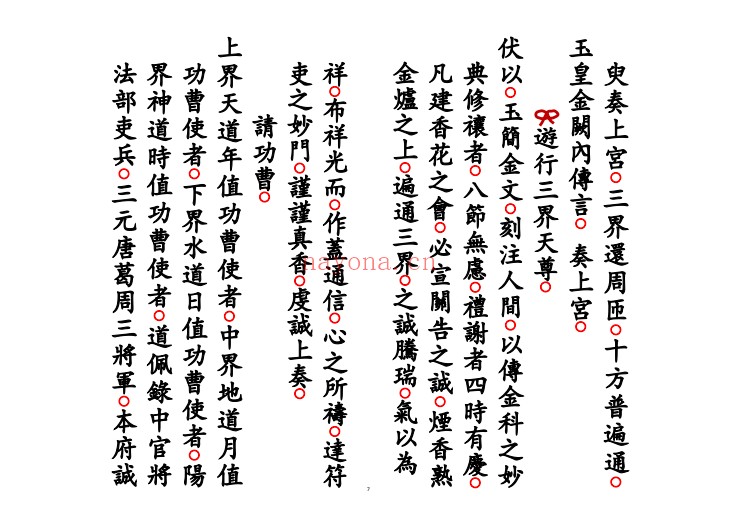 臾奏上宮○三界還周匝○十方普遍通○
玉皇金闕內傳言○奏上宮○
遊行三界天尊○
伏以○玉簡金文○刻注人間○以傳金科之妙
典修禳者○八節無慮○禮謝者四時有慶○
凡建香花之會○必宣關告之誠○煙香熟
金爐之上○遍通三界○之誠騰瑞○氣以為
祥○布祥光而○作蓋通信○心之所禱○達符
吏之妙門○謹謹真香○虔誠上奏○
請功曹○
上界天道年值功曹使者○中界地道月值
功曹使者○下界水道日值功曹使者○陽
界神道時值功曹使者○道佩錄中官將
法部吏兵○三元唐葛周三將軍○本府誠
nayona.cn